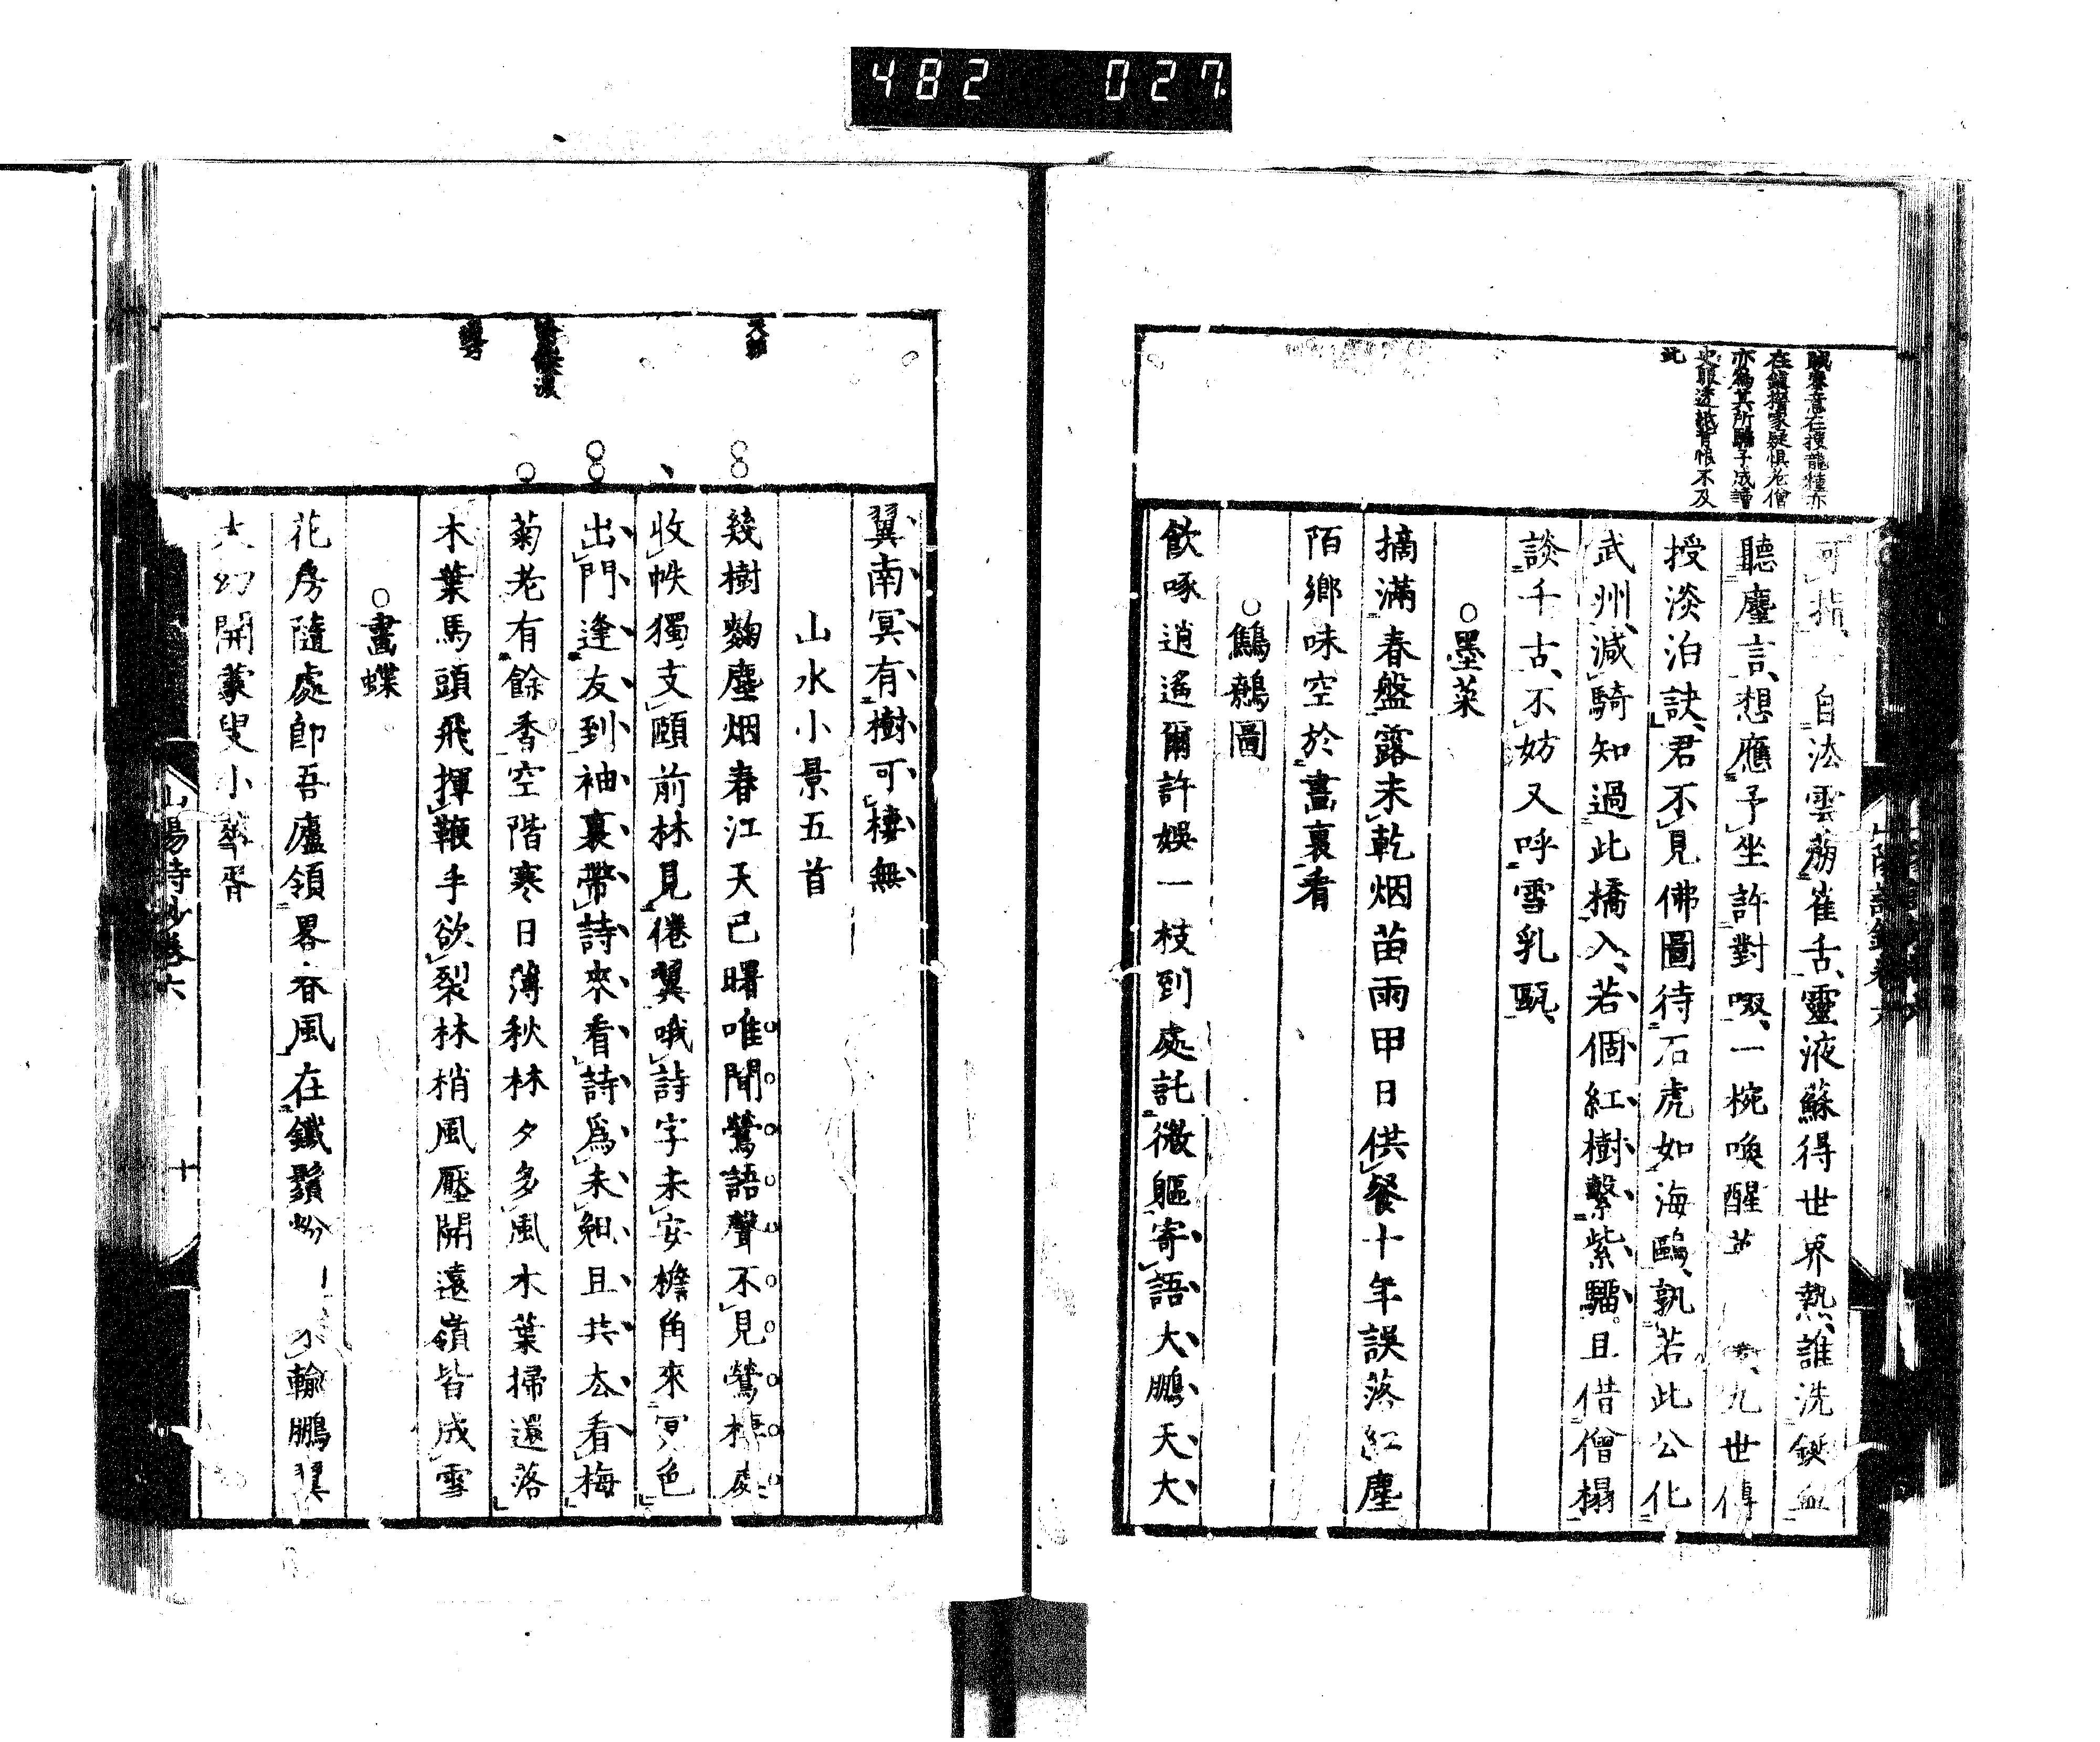 482 027
在鎮撫家疑惧老僧
史眼透紙背恨不及
此
自法雲葫雀舌靈液蘇得世界熱誰洗鋒血
聽塵言想應予坐許對啜一椀喚醒 九世傳
授淡泊訣君不見佛圖待石虎如海鷗孰若此公化
武州減騎知過此橋入若個紅樹繫紫騮且借僧榻
談千古不妨又呼雪乳甌
○墨菜
摘滿春盤露未乾烟苗雨甲日供餐十年誤落紅塵
陌鄉味空於畫裏看
○鷦鷯圖
飲啄逍遙爾許娛一枝到處託微軀寄語大鵬天大
翼南冥有樹可棲無
山水小景五首
幾樹麹塵烟春江天已曙唯聞鶯語聲不見鶯棲處
收帙獨支頤前林見倦翼哦詩字未安檐角來冥色
出門逢友到袖裏帶詩來看詩爲未勉且共去看梅
菊老有餘香空階寒日薄秋林夕多風木葉掃還落
木葉馬頭飛揮鞭手欲裂林梢風壓開遠嶺皆成雪
○畫蝶
花房隨處即吾廬領畧春風在鐵鬚 不輸鵬翼
大幻開蒙叟小華胥
山陽詩鈔卷六
十